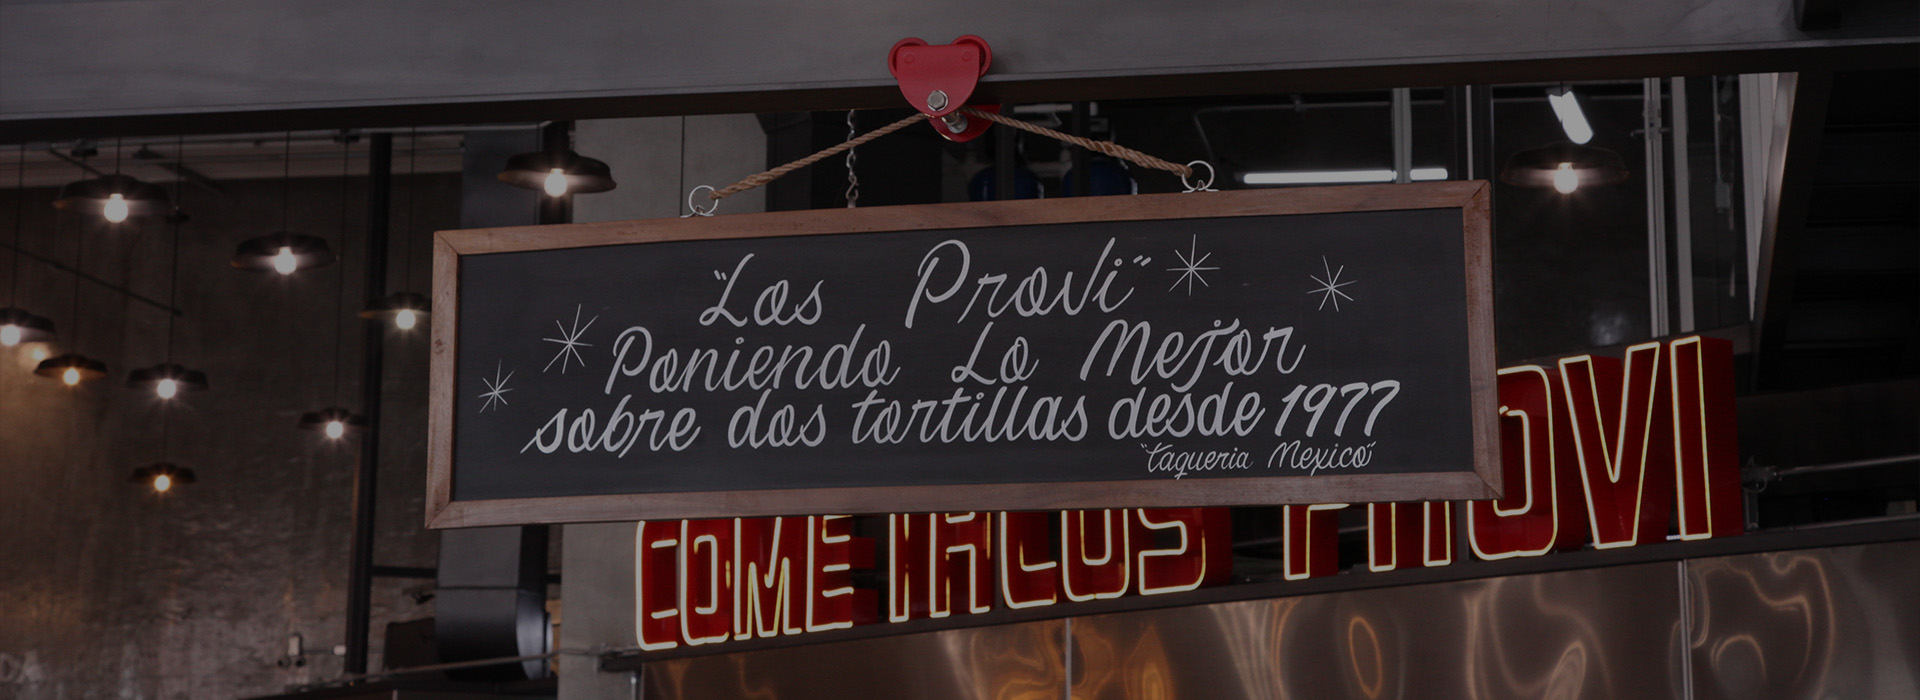 "Los Provi"
Poniendo Lo Mejor
sobre dos tortillas desde 1977
"Taqueria Mexico"
COME TACOS PROVI